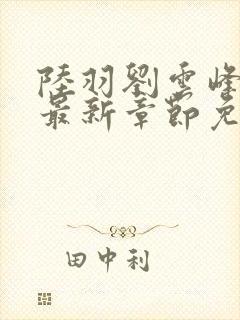 陸羽劉雲峰
最新章節免
田中利